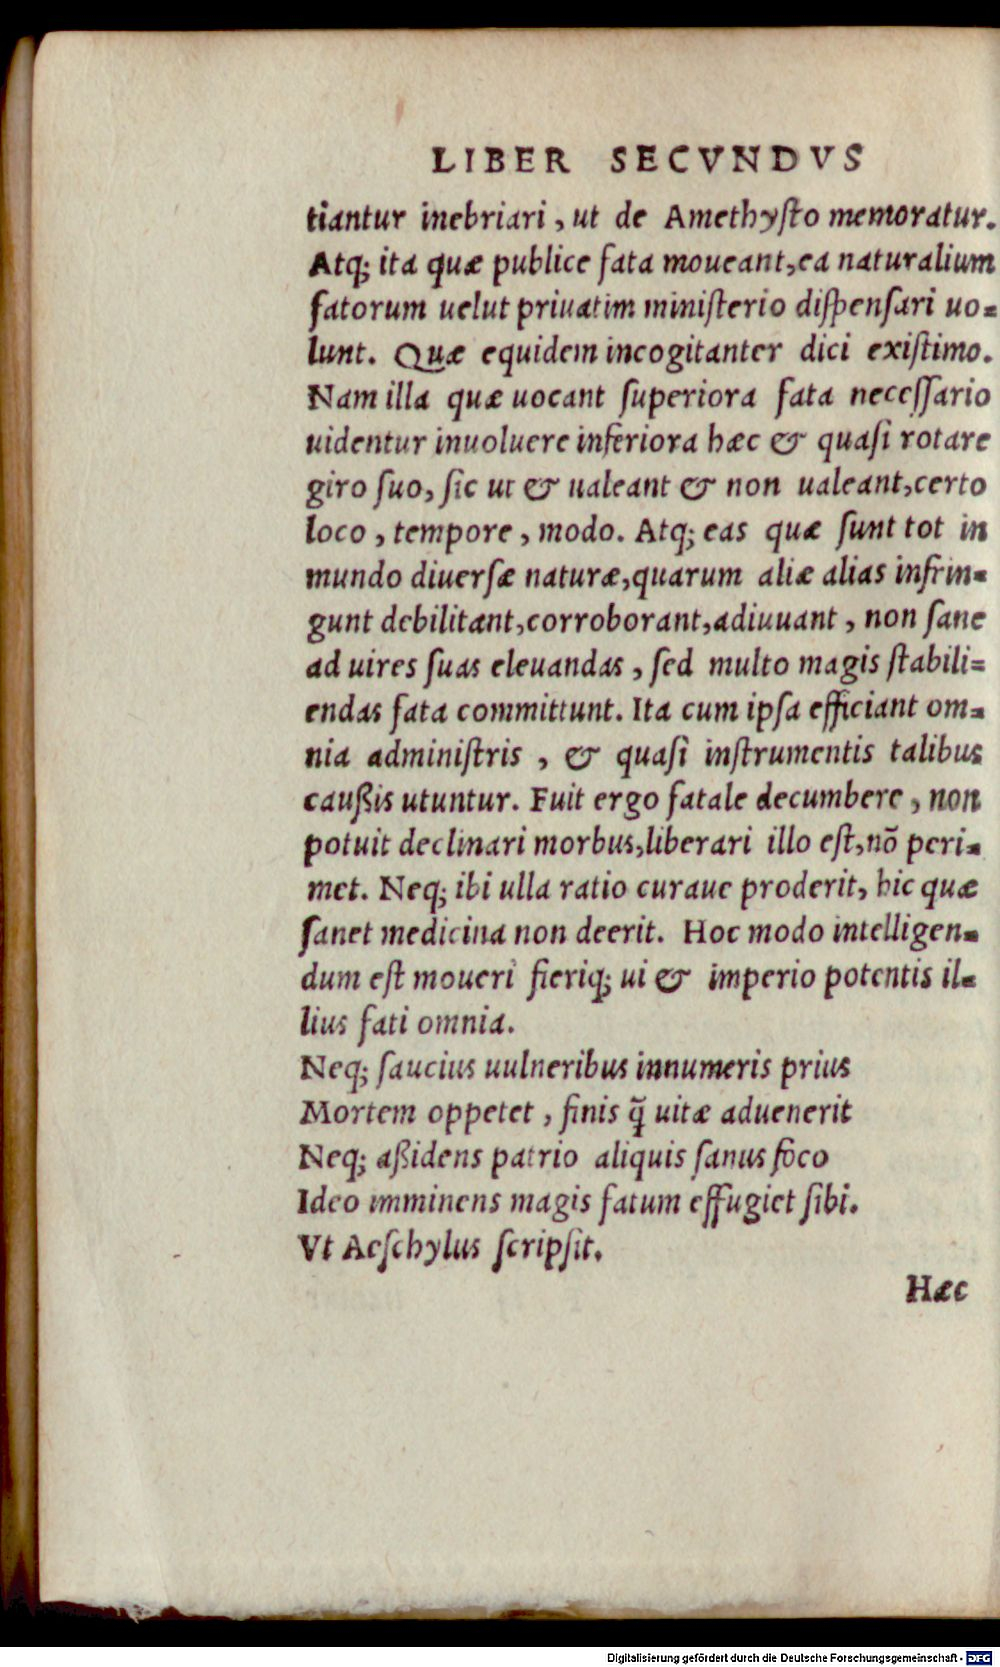 LIBER SECVNDVS
tiantur inebriari, ut de Amethyſto memoratur.
Atq; ita quæ publice fata moueant, ea naturalium
fatorum uelut priuatim miniſterio diſpenſari uo=
lunt. Quæ equidem incogitanter dici exiſtimo.
Nam illa quæ uocant ſuperiora fata neceſſario
uidentur inuoluere inferiora hæc & quaſi rotare
giro ſuo, ſic ut & ualeant & non ualeant, certo
loco, tempore, modo. Atq; eas quæ ſunt tot in
mundo diuerſæ naturæ, quarum aliæ alias infrin=
gunt debilitant, corroborant, adiuuant, non ſane
ad uires ſuas eleuandas, ſed multo magis ſtabili=
endas fata committunt. Ita cum ipſa efficiant om=
nia adminiſtris, & quaſi inſtrumentis talibus
cauſsis utuntur. Fuit ergo fatale decumbere, non
potuit declinari morbus, liberari illo eſt, nõ peri=
met. Neq; ibi ulla ratio curaue proderit, hic quæ
ſanet medicina non deerit. Hoc modo intelligen=
dum eſt moueri fieriq; ui & imperio potentis il=
lius fati omnia.
Neq; ſaucius uulneribus innumeris prius
Mortem oppetet, finis q̃ uitæ aduenerit
Neq; aſsidens patrio aliquis ſanus foco
Ideo imminens magis fatum effugiet ſibi.
Vt Aeſchylus ſcripſit.
Hæc
Digitalisierung gefördert durch die Deutsche Forschungsgemeinschaft - DFG